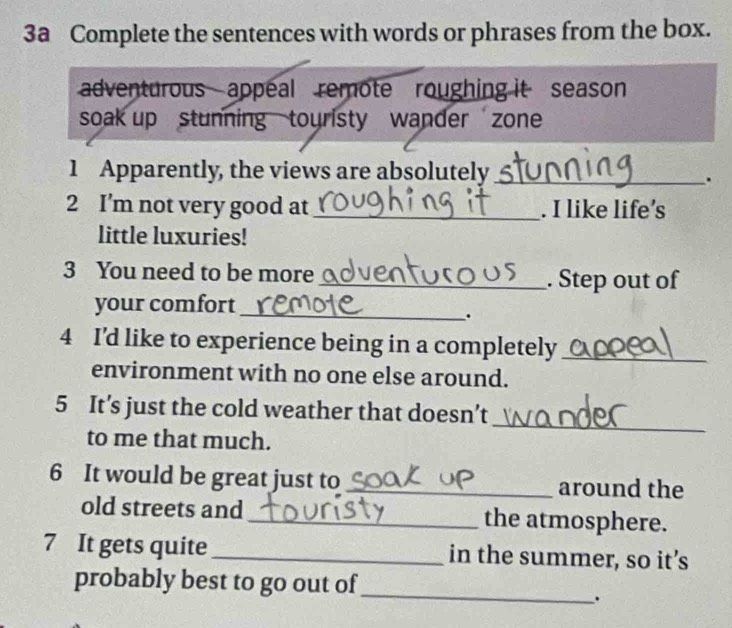 3a Complete the sentences with words or phrases from the box.
adventurous appeal remote roughing it season
soak up stunning touristy wander zone
1 Apparently, the views are absolutely stunning.
2 I'm not very good at roughing it. I like life's
little luxuries!
3 You need to be more adventurous. Step out of
your comfort remote.
4 I'd like to experience being in a completely appeal
environment with no one else around.
5 It's just the cold weather that doesn't wander
to me that much.
6 It would be great just to soak up around the
old streets and touristy the atmosphere.
7 It gets quite ____ in the summer, so it's
probably best to go out of ____.